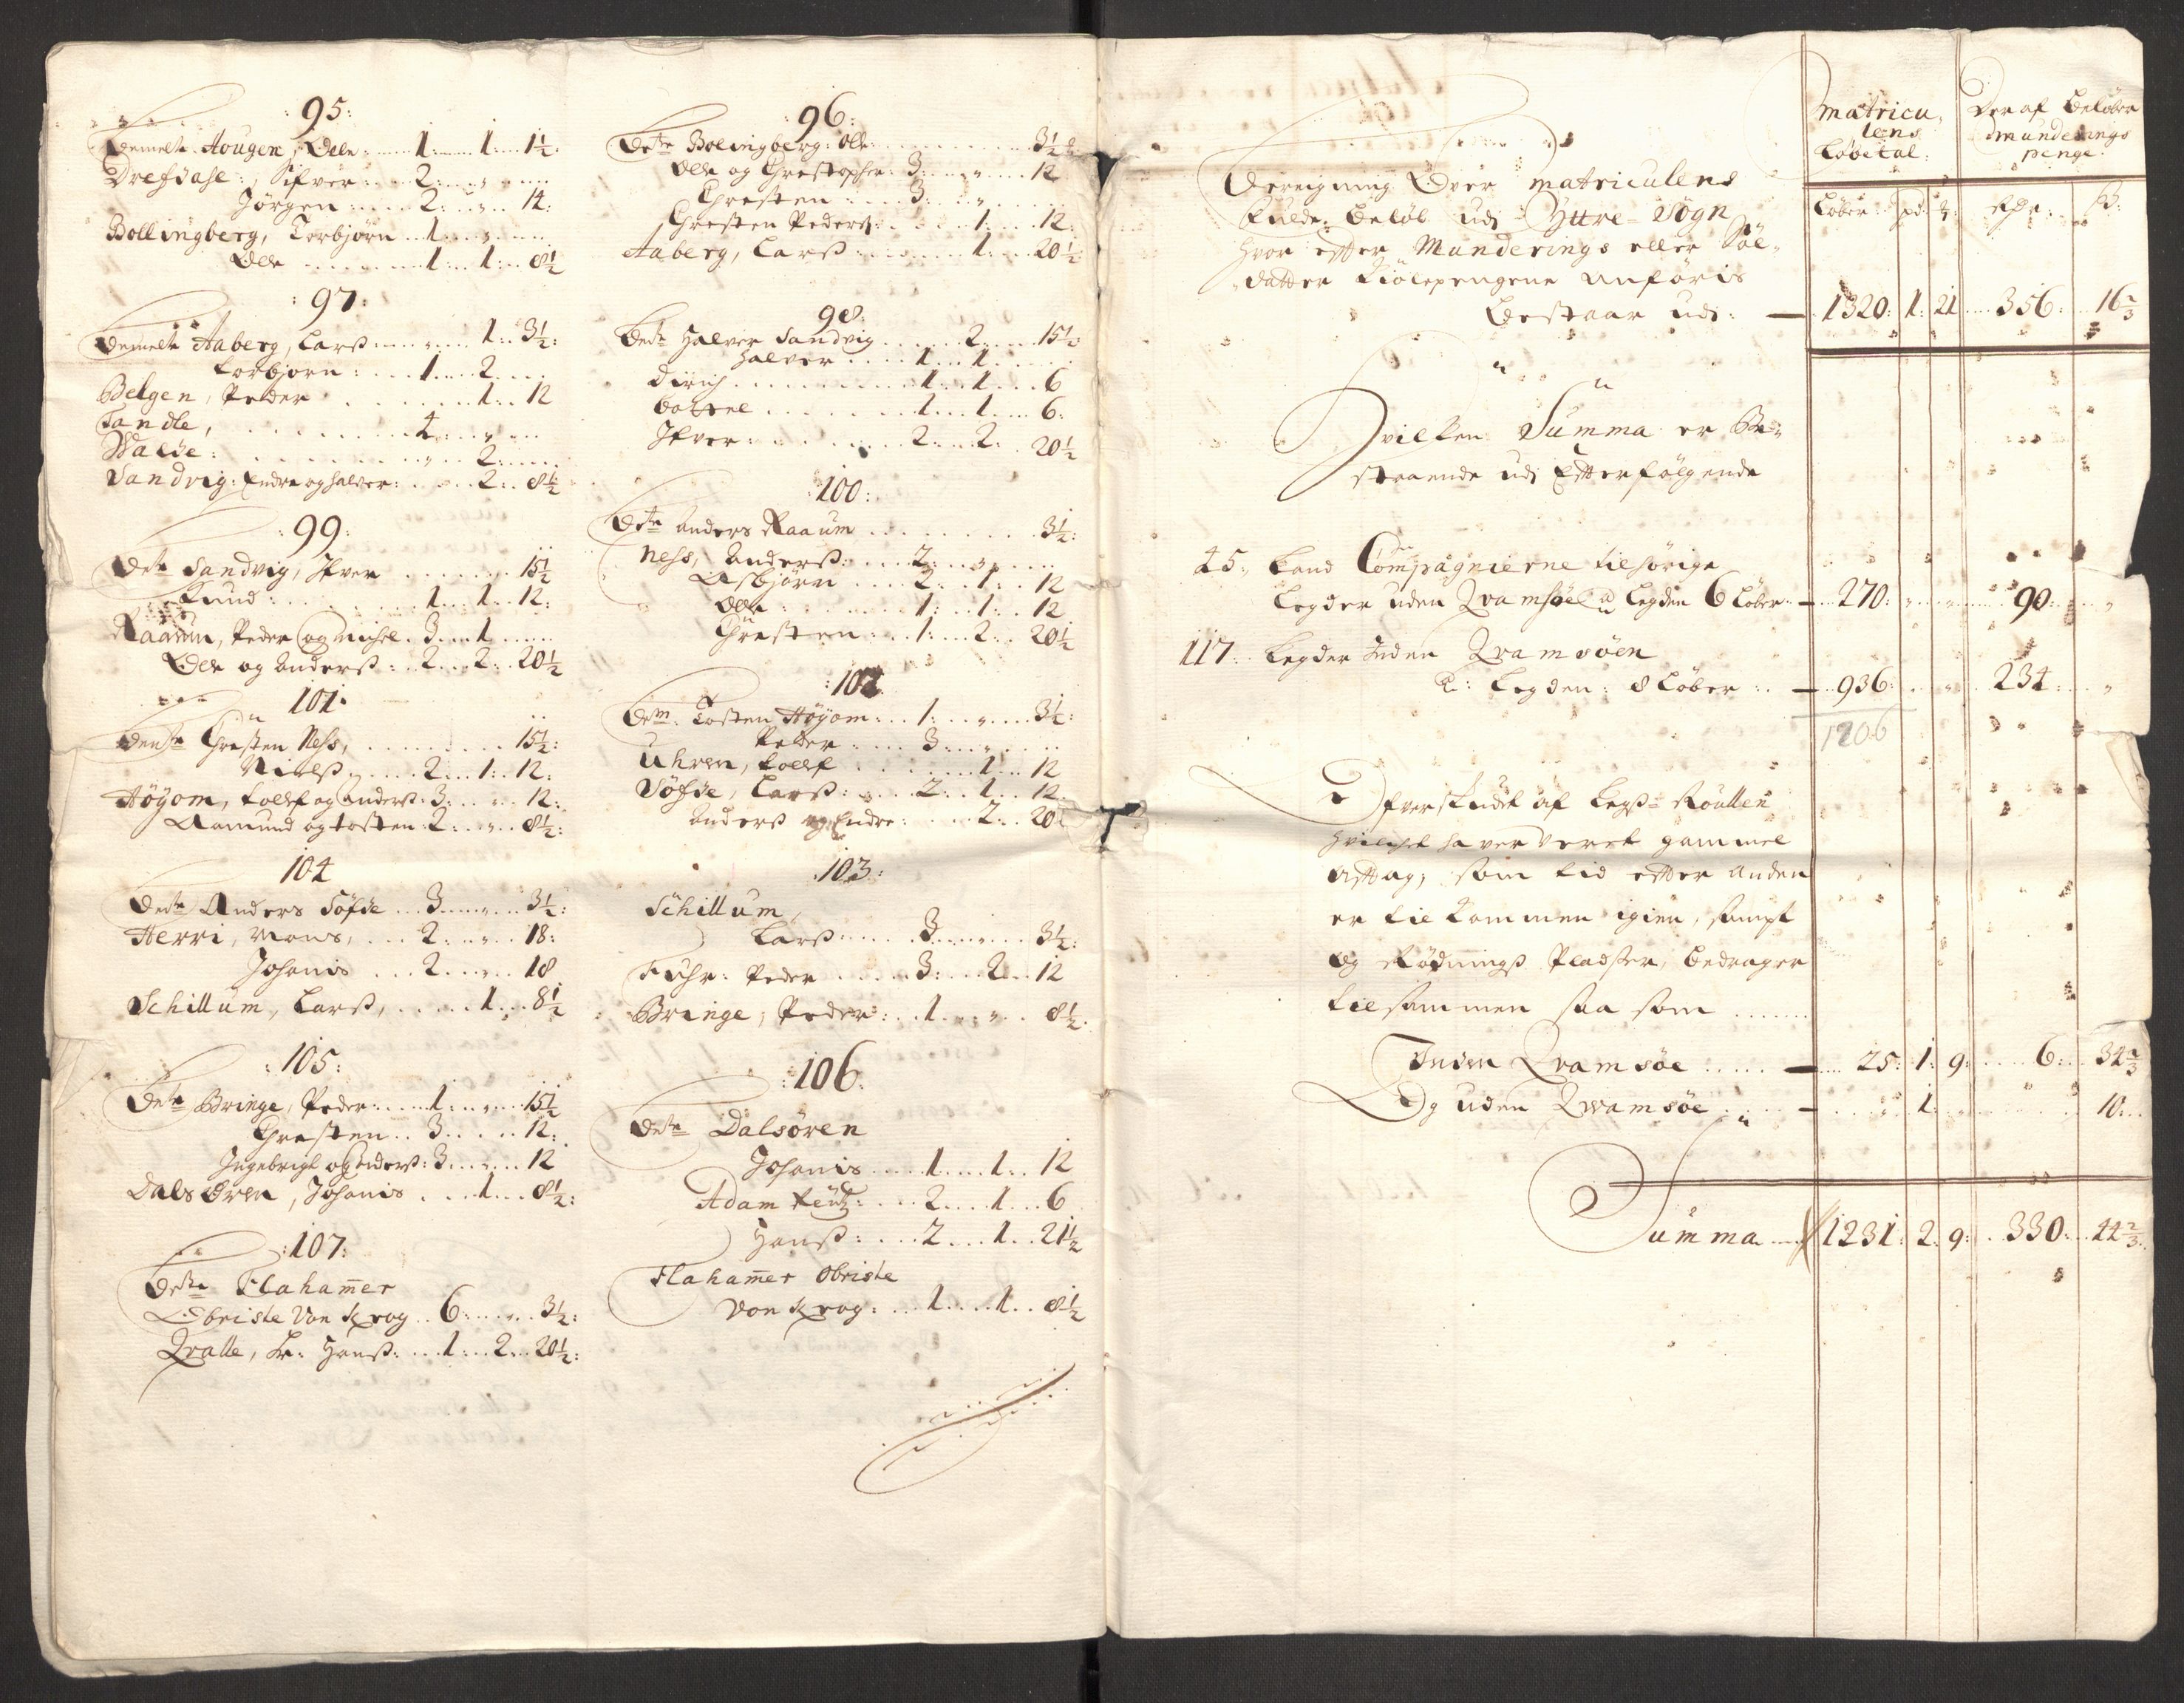 :95:
bemelte Hougen, Olle: 1 : 1 : 1½:
Drefdahl:, Sifver: 2: „
Jørgen: 2: „ 14:
Bollingberg, Torbjørn 1: „
Olle 1: 1: 8½
:97:
bemelte Aaberg, Larß „ 1: 3½:
Torbjørn: 1: 2
Belgen, Peder 1: 12
Tandle, 4: „
Walde: „ 2:
Sandvig: Endre og halver: 2: 8½
:99:
Deste Sandvig, Ifver 15½
Knud: 1: 1: 12:
Raaum, Peder og Michel. 3: 1
Olle og Anderß: 2: 2: 20½
101:
Denste Christen Ness, 15½:
Nielß, 2: 1: 12:
Høyom, Tollef og Anderß: 3: „ 12:
Aamund og tosten: 2: „ 8½:
104
Deste Anders Söfde 3: „ 3½:
Herri, Mons, 2: „ 18:
Johanis 2: „ 18
Schillum, Larß, 1: 8½
:105:
Deste Bringe, Peder: 1: „ 15½
Christen 3: 12:
Ingebrigt og Anderß: 3: „ 12
Dals Øren, Johanis 1: 8½:
:107:
Deste Flahamer
Obriste Von Krog 6: „ 3½:
Qvalle, Hr: Hanß: 1: 2: 20½:
:96:
Deste Bolingberg: Olle: 3½:
Olle og Christopher: 3: „ 12
Christen 3: „
Christen Pederß: 1: 12:
Aaberg, Larß: 1: 20½
98:
Deste Halver Sandvig 2: 15½:
Halver 1: 1:
Dirich 1: 1: 6
Bottel 1: 1: 6:
Ifver: 2: 2: 20½
:100:
Deste Anders Raaum 3½:
Ness, Anderß: 2: „
Asbjørn 2: 1: 12
Olle: 1: 1: 12
Christen 1: 2: 20½
:102:
Dem: Tosten Høyom: 1: „ 3½:
Peder 3: „
Uhren, Tollef 1: 12
Söfde, Larß: „ 2: 1: 12
Anderß og Endre: 2: 20
:103:
Schillum,
Larß 3: „ 3½:
Fuhr: Peder 3: 2: 12
Bringe, Peder: 1: „ 8½.
:106:
Deste Dalsøren
Johanis 1: 1: 12
Adam 2: 1: 6
Hanß: 2: 1: 21½
Flahamer Obriste
von Krog: 1: 1: 8½
Matricu,
lens
Løbetal:
Deraf beløber
munderings
penge:
Løber: pd: rdr: ß:
Bereigning Over Matriculens
fulde beløb udi Yttre Sogn
hvor efter Munderings eller Sol„
datter Kiolepengene anføris
bestaar udi: 1320: 1: 21 356: 16⅔
Hvilken Summa er Be„
staaende udi Efterfølgende
45„ Land Compagnierne tilhørige
Legder uden Qvamsøe a Legden 6 Løber: 270: „ „ 90: „
117: Legder inden Qvamsøen
a: Legden: 8 Løber: 936: „ 234: „
1206
Ofverskudt af Legß Roullen
hvilchet haver veret gammel
aftag, som tid efter anden
er tilkommen igien, sampt
og Rødnings Pladser, bedrager
tilsammen saa som
Inden Qvamsøe: 25: 1: 9: 6: 34⅔
Og uden Qvamsøe 1: „ 10:
Summa 1231: 2: 9: 330: 44⅔